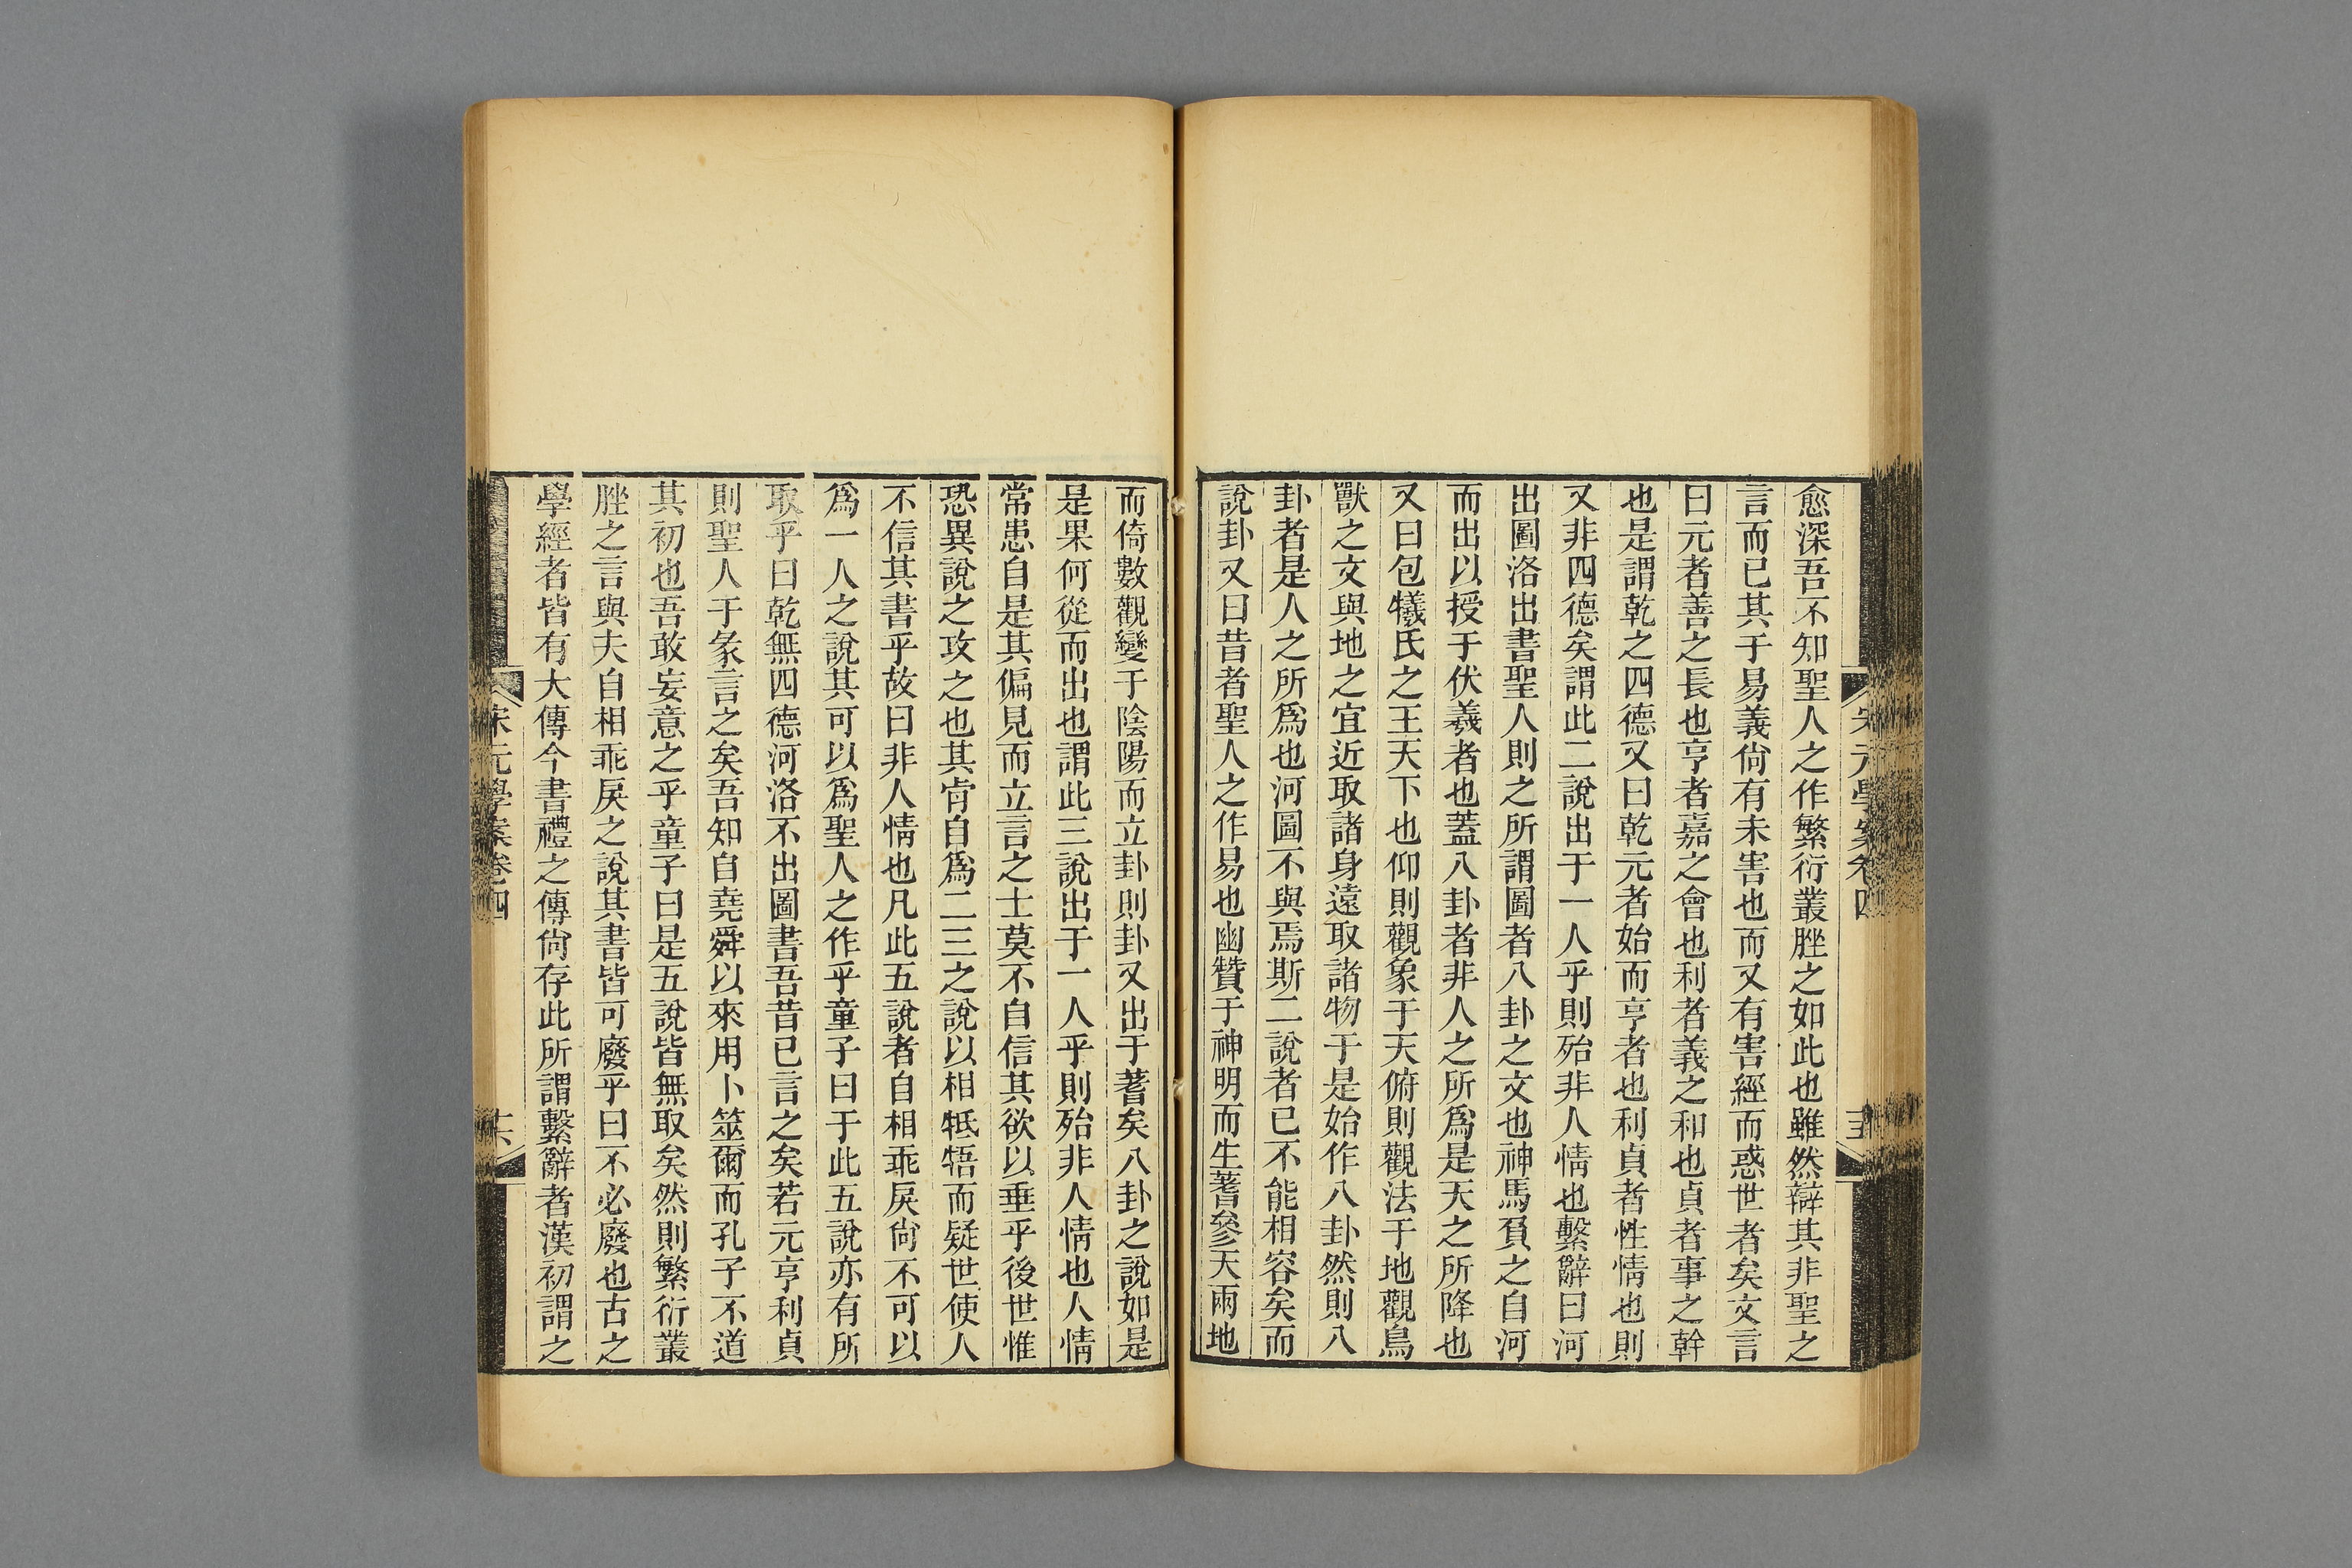 宋元學案卷四
愈深吾不知聖人之作繁衍叢脞之如此也雖然辯其非聖之
言而已其于易義尙有未害也而又有害經而惑世者矣文言
曰元者善之長也亨者嘉之會也利者義之和也貞者事之幹
也是謂乾之四德又曰乾元者始而亨者也利貞者性情也則
又非四德矣謂此二說出于一人乎則殆非人情也繫辭曰河
出圖洛出書聖人則之所謂圖者八卦之文也神馬負之自河
而出以授于伏羲者也蓋八卦者非人之所爲是天之所降也
又曰包犧氏之王天下也仰則觀象于天俯則觀法于地觀鳥
獸之文與地之宜近取諸身遠取諸物于是始作八卦然則八
卦者是人之所爲也河圖不與焉斯二說者已不能相容矣而
說卦又曰昔者聖人之作易也幽贊于神明而生蓍參天兩地
而倚數觀變于陰陽而立卦則卦又出于蓍矣八卦之說如是
是果何從而出也謂此三說出于一人乎則殆非人情也人情
常患自是其偏見而立言之士莫不自信其欲以垂乎後世惟
恐異說之攻之也其肯自爲二三之說以相牴牾而疑世使人
不信其書乎故曰非人情也凡此五說者自相乖戾尙不可以
爲一人之說其可以爲聖人之作乎童子曰于此五說亦有所
取乎曰乾無四德河洛不出圖書吾昔已言之矣若元亨利貞
則聖人于彖言之矣吾知自堯舜以來用卜筮爾而孔子不道
其初也吾敢妄意之乎童子曰是五說皆無取矣然則繁衍叢
脞之言與夫自相乖戾之說其書皆可廢乎曰不必廢也古之
學經者皆有大傳今書禮之傳尙存此所謂繫辭者漢初謂之
宋元學案卷四